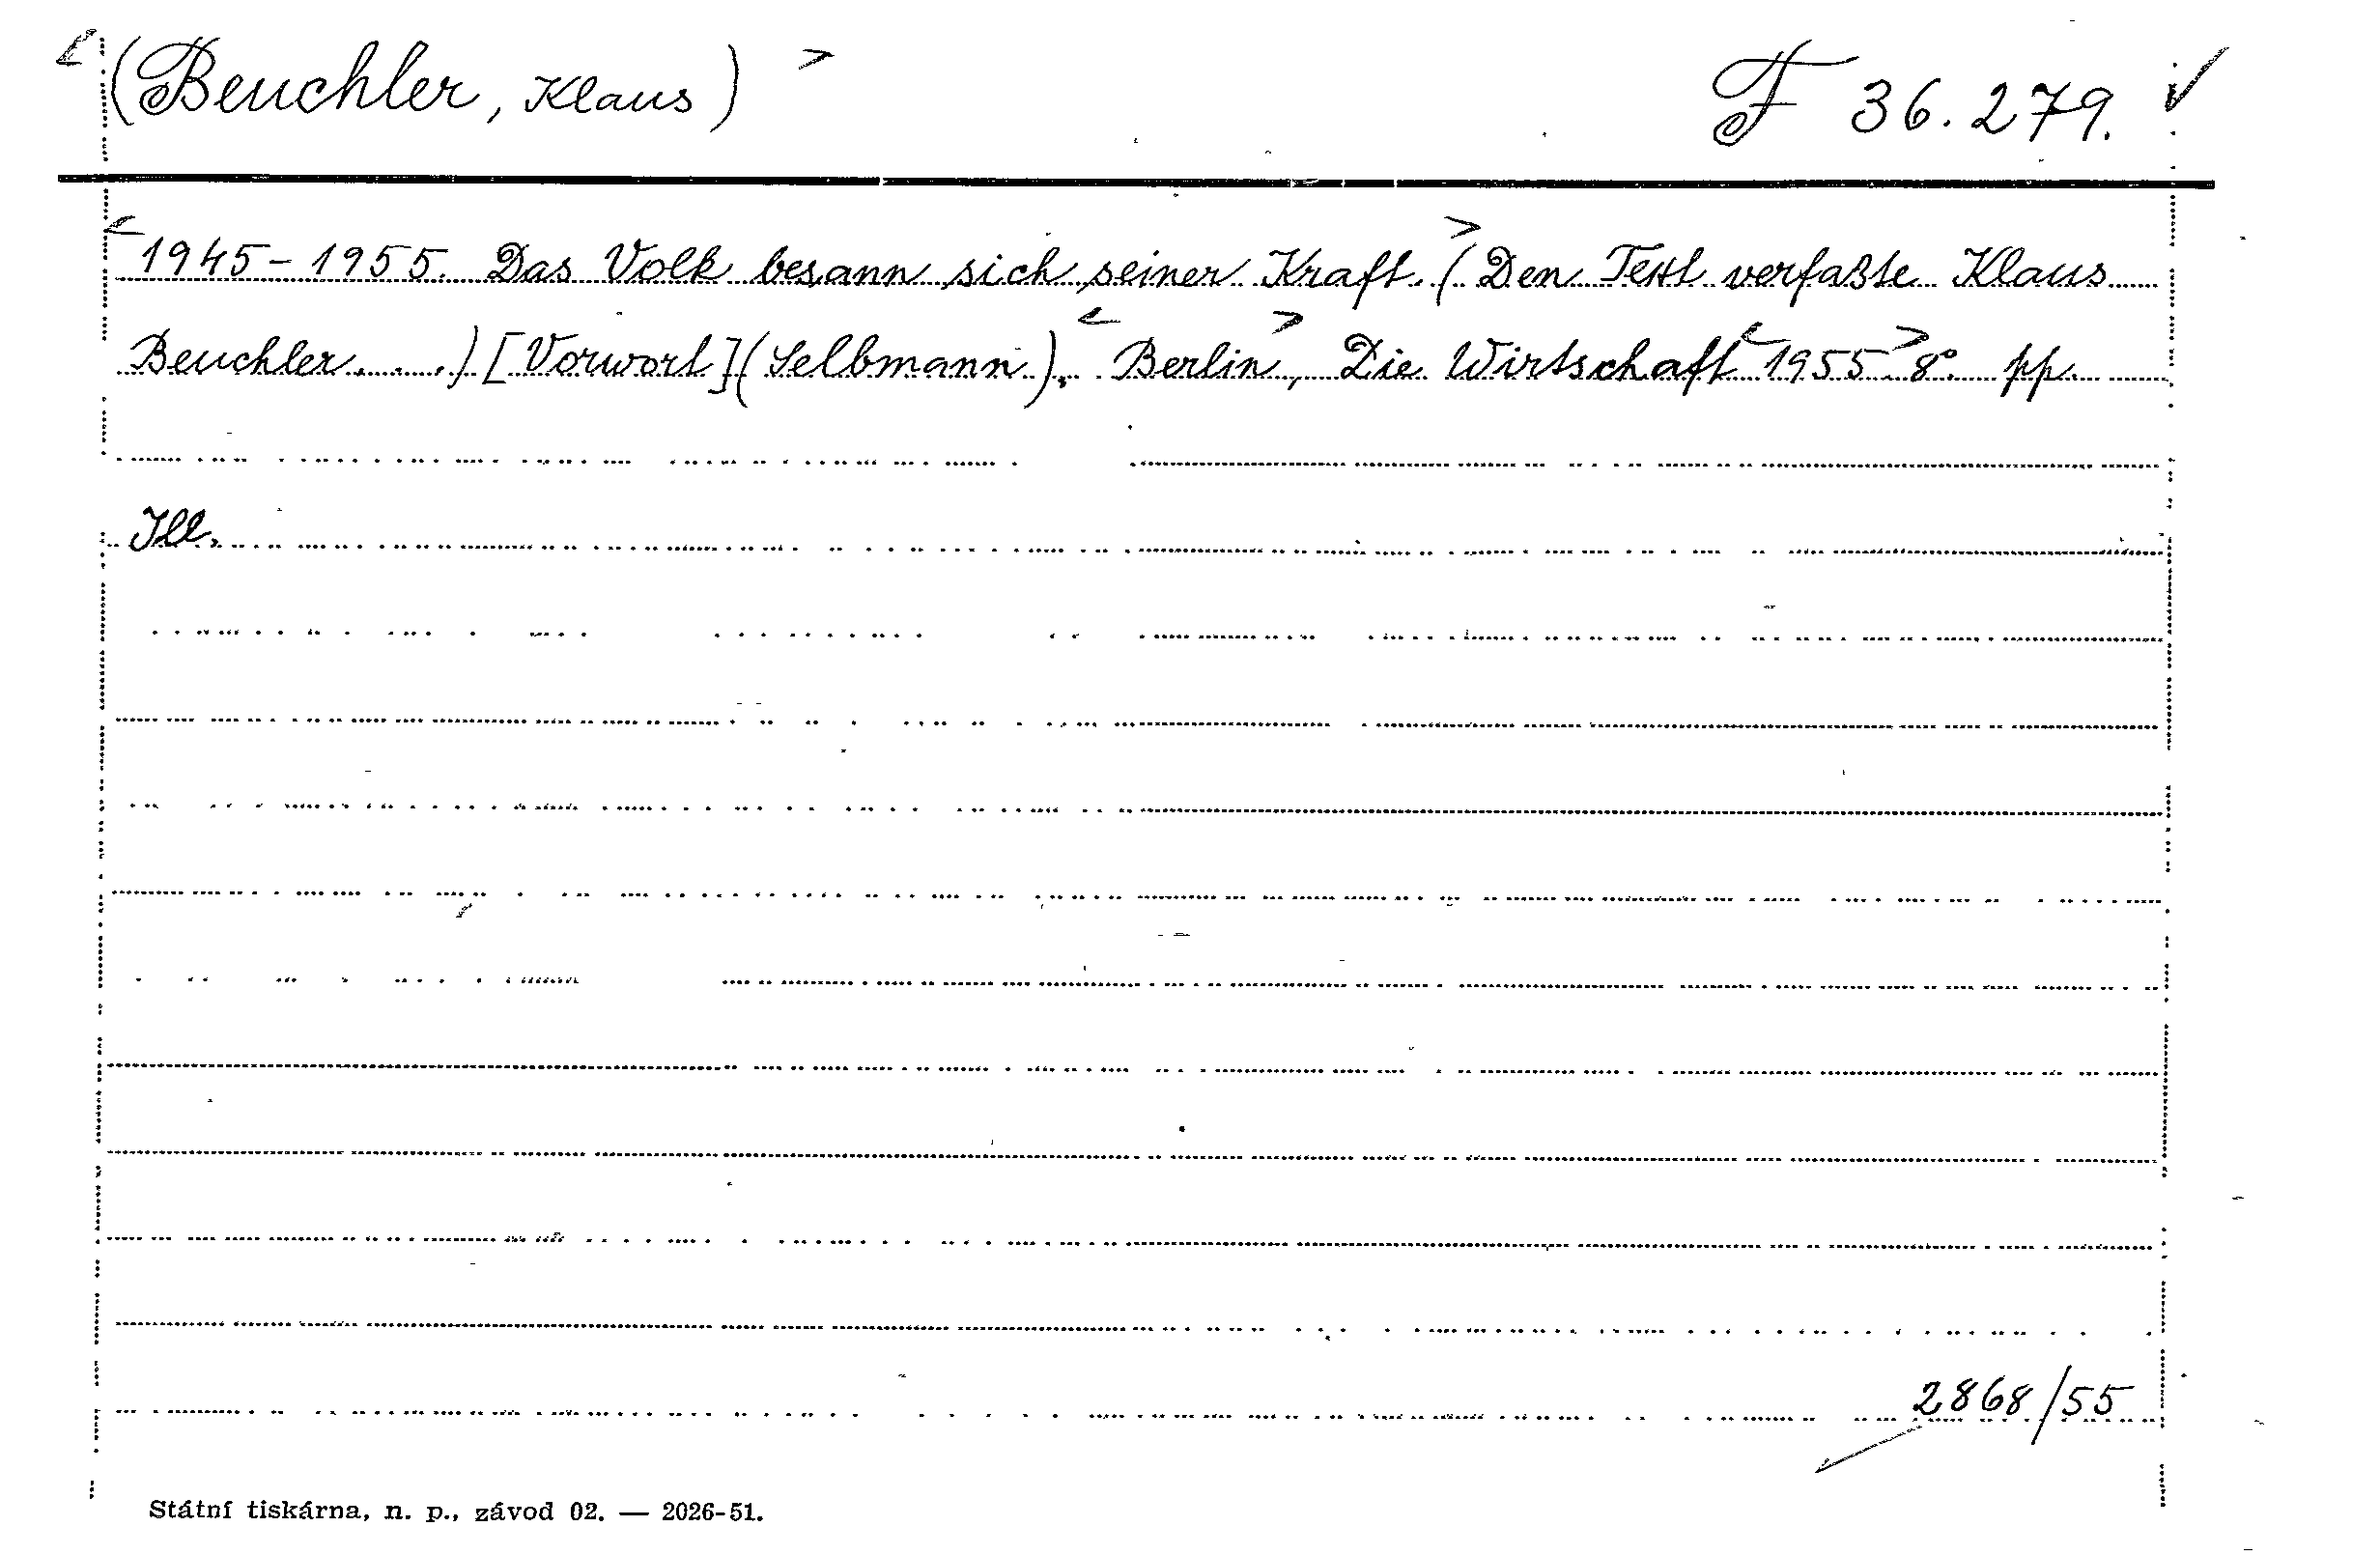 <(Beuchler, Klaus)> F 36.279. ✓
<1945-1955. Das Volk besann sich seiner Kraft.> (Den Text verfaßte Klaus
Beuchler. . .) [Vorwort] (Selbmann). <Berlin>, Die Wirtschaft <1955> 8°. pp.
Ill.
2868/55
Státní tiskárna, n. p., závod 02. — 2026-51.